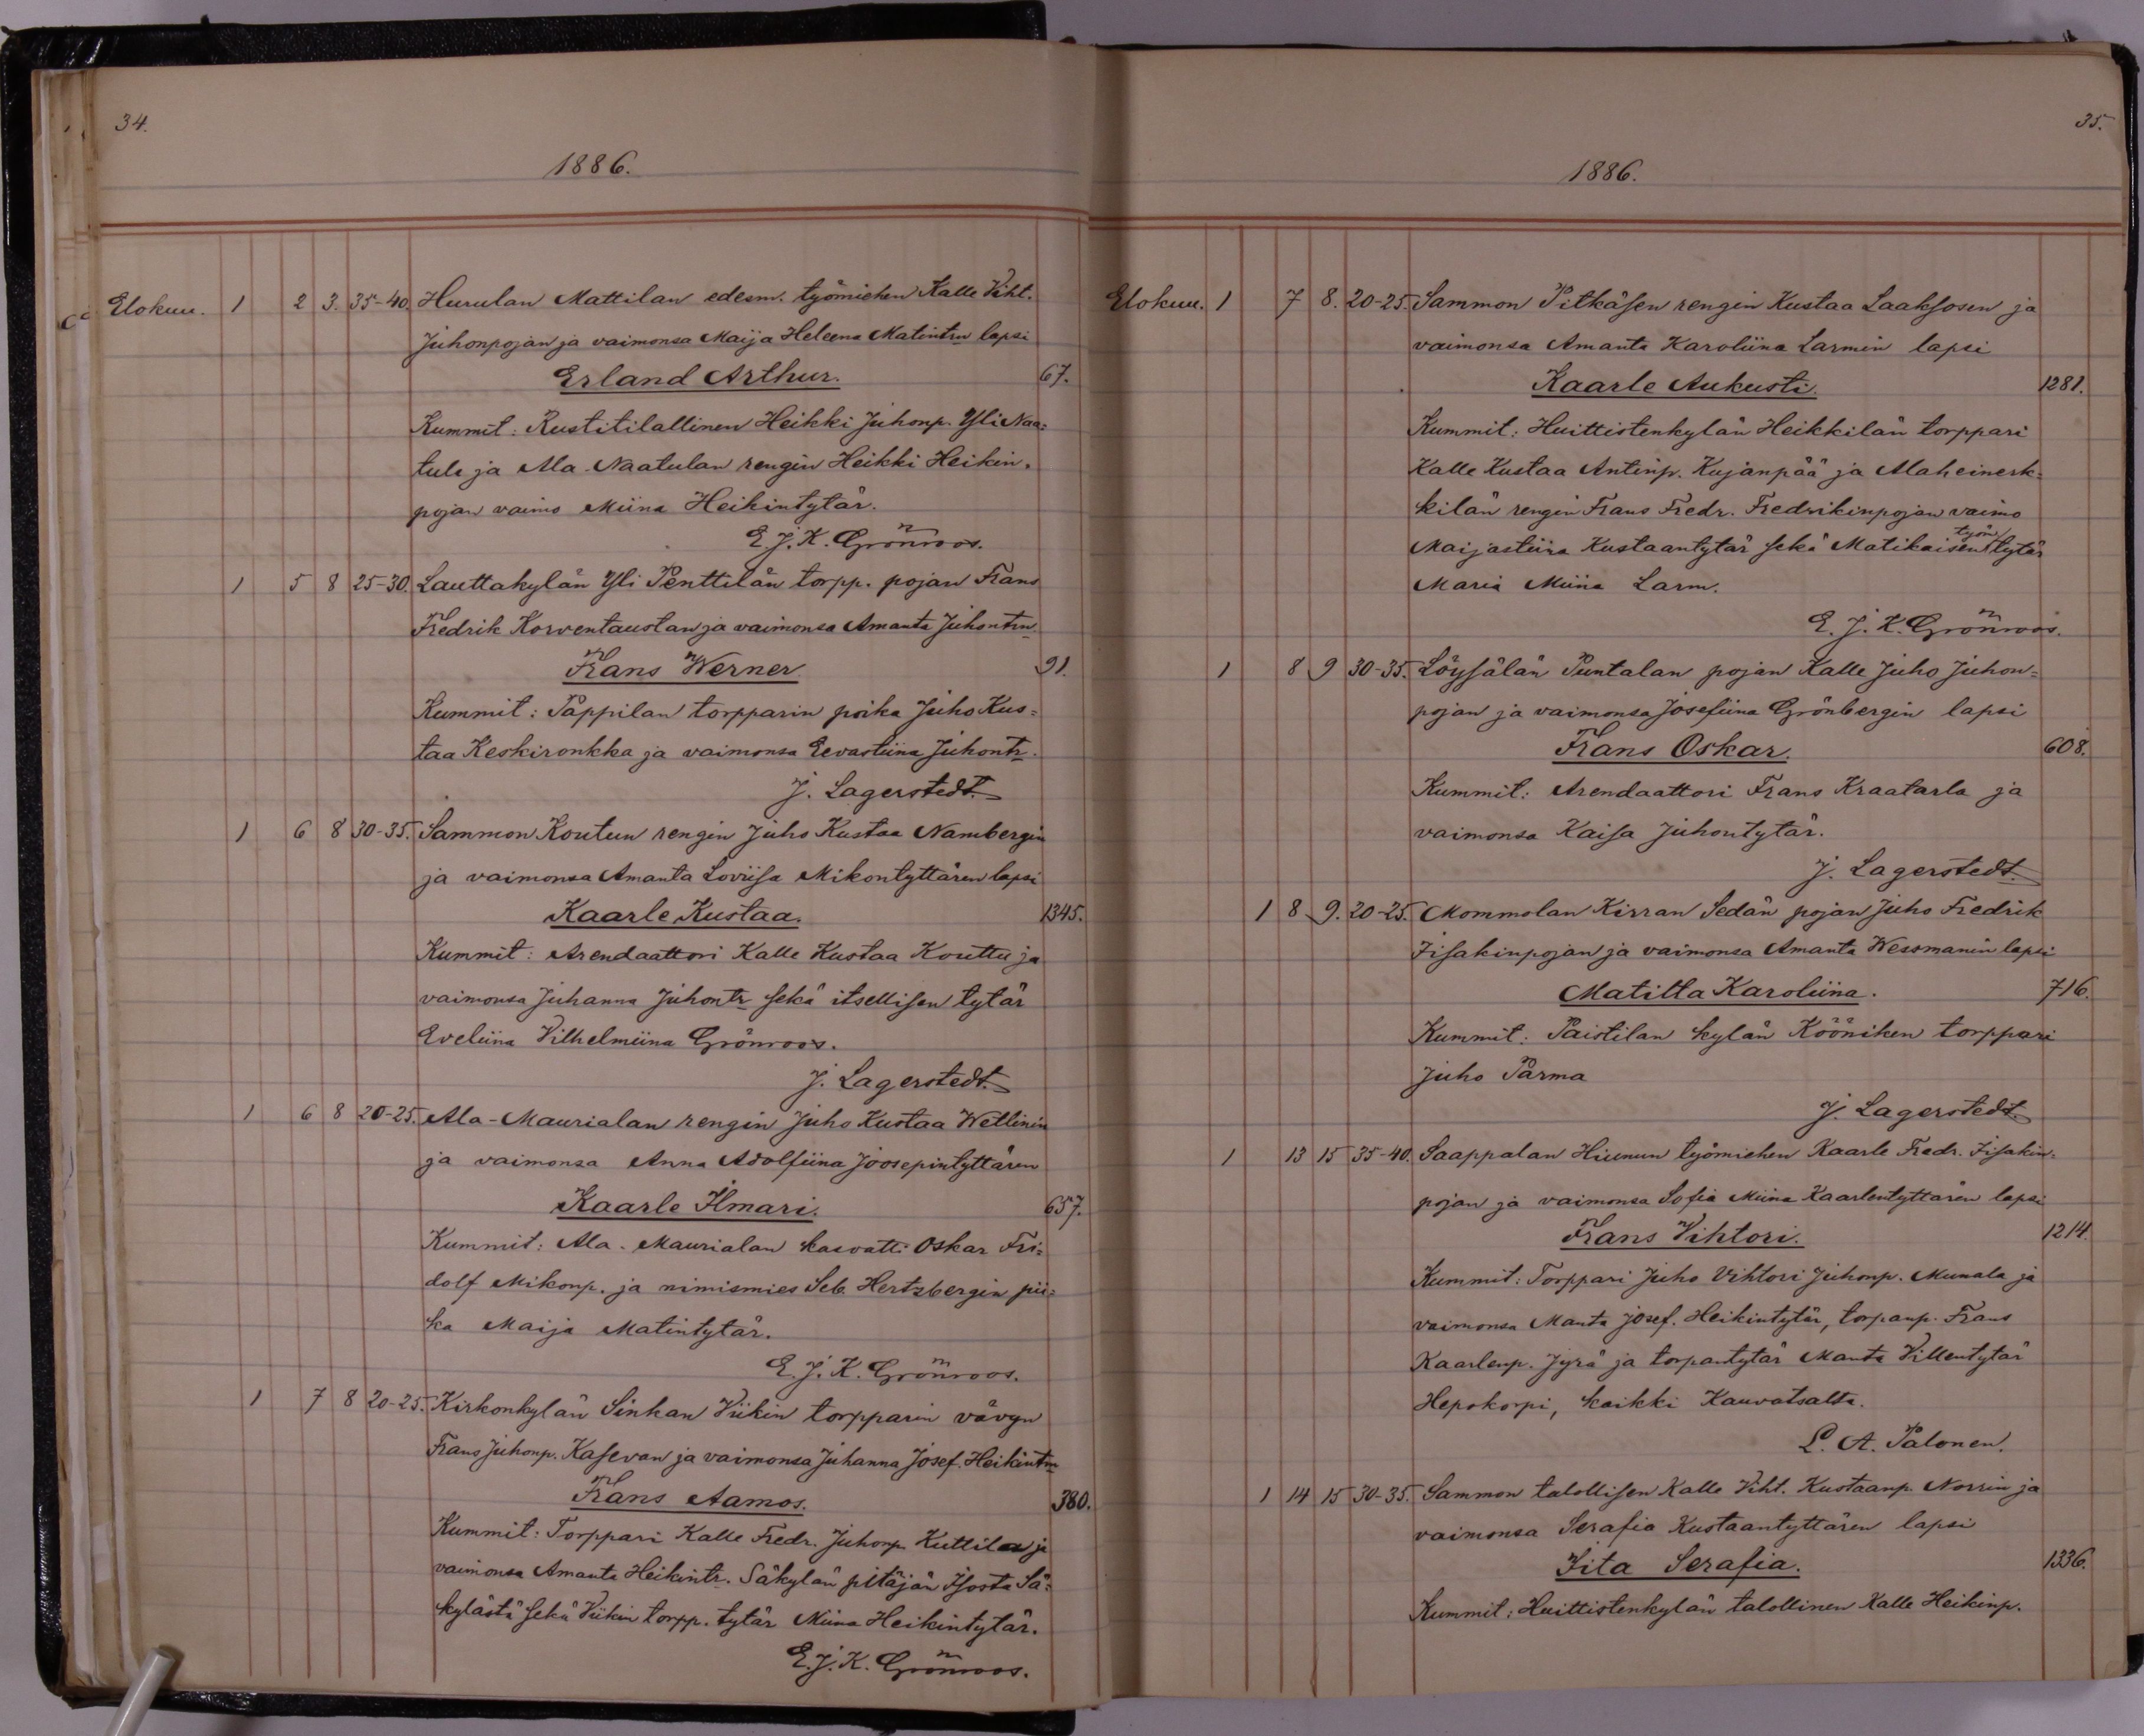 34.
1886.
Elokuu. 1 2 3. 35-40. Hurulan Mattilan edesm. työmiehen Kalle Viht.
Juhonpojan ja vaimonsa Maija Heleena Matintrn lapsi
Erland Arthur. 67.
Kummit: Rustitilallinen Heikki Juhonp. Yli Naa=
tula ja Ala-Naatulan rengin Heikki Heikin-
pojan vaimo Miina Heikintytär.
E. J. K. Grönroos.
1 5 8 25-30. Lauttakylän Yli Penttilän torpp. pojan Frans
Fredrik Korventaustan ja vaimonsa Amanta Juhontrn
Frans Werner 91.
Kummit: Pappilan torpparin poika Juho Kus=
taa Keskironkka ja vaimonsa Eevastiina Juhontr.
J. Lagerstedt.
1 6 8 30-35. Sammon Koutun rengin Juho Kustaa Nambergin
ja vaimonsa Amanta Loviisa Mikontyttären lapsi
Kaarle Kustaa. 1345.
Kummit: Arendaattori Kalle Kustaa Kouttu ja
vaimonsa Juhanna Juhontr sekä itsellisen tytär
Eveliina Vilhelmiina Grönroos.
J. Lagerstedt.
1 6 8 20-25. Ala-Maurialan rengin Juho Kustaa Wetlinin
ja vaimonsa Anna Adolfiina Joosepintyttären
Kaarle Ilmari. 657.
Kummit: Ala-Maurialan kasvatti Oskar Fri=
dolf Mikonp. ja nimismies Seb. Hertzbergin pii=
ka Maija Matintytär.
E. J. K. Grönroos.
1 7 8 20-25. Kirkonkylän Sinkan Viikin torpparin vävyn
Frans Juhonp. Kasevan ja vaimonsa Juhanna Josef. Heikintrn
Frans Aamos. 380.
Kummit: Torppari Kalle Fredr. Juhonp. Kuttila ja
vaimonsa Amanta Heikintr. Säkylän pitäjän Isosta Sä=
kylästä sekä Viikin torpp. tytär Miina Heikintytär.
E. J. K. Grönroos.
35.
1886.
Elokuu. 1 7 8. 20-25. Sammon Pitkäsen rengin Kustaa Laaksosen ja
vaimonsa Amanta Karoliina Larmin lapsi
Kaarle Aukusti. 1281.
Kummit: Huittistenkylän Heikkilän torppari
Kalle Kustaa Antinp. Kujanpää ja Alaheinerk=
kilän rengin Frans Fredr. Fredrikinpojan vaimo
Maijastiina Kustaantytär sekä Matikaisen työm tytär
Maria Miina Larm.
E. J. K. Grönroos.
1 8 9 30-35. Löysälän Puntalan pojan Kalle Juho Juhon=
pojan ja vaimonsa Josefiina Grönbergin lapsi
Frans Oskar. 608.
Kummit: Arendaattori Frans Kraatarla ja
vaimonsa Kaisa Juhontytär.
J. Lagerstedt.
1 8 9. 20-25. Mommolan Kirran Sedän pojan Juho Fredrik
Iisakinpojan ja vaimonsa Amanta Wessmanin lapsi
Matilta Karoliina. 716.
Kummit: Raistilan kylän Kööniken torppari
Juho Parma
J. Lagerstedt.
1 13 15 35-40. Saappalan Hiunun työmiehen Kaarle Fredr. Iisakin-
pojan ja vaimonsa Sofia Miina Kaarlentyttären lapsi
Frans Vihtori. 1214.
Kummit: Torppari Juho Vihtori Juhonp. Munala ja
vaimonsa Manta Josef. Heikintytär, torpanp. Frans
Kaarlenp. Jyrä ja torpantytär Manta Villentytär
Hepokorpi, kaikki Kauvatsalta.
L. A. Palonen.
1 14 15 30-35. Sammon talollisen Kalle Viht. Kustaanp. Norrin ja
vaimonsa Serafia Kustaantyttären lapsi
Iita Serafia. 1336.
Kummit: Huittistenkylän talollinen Kalle Heikinp.